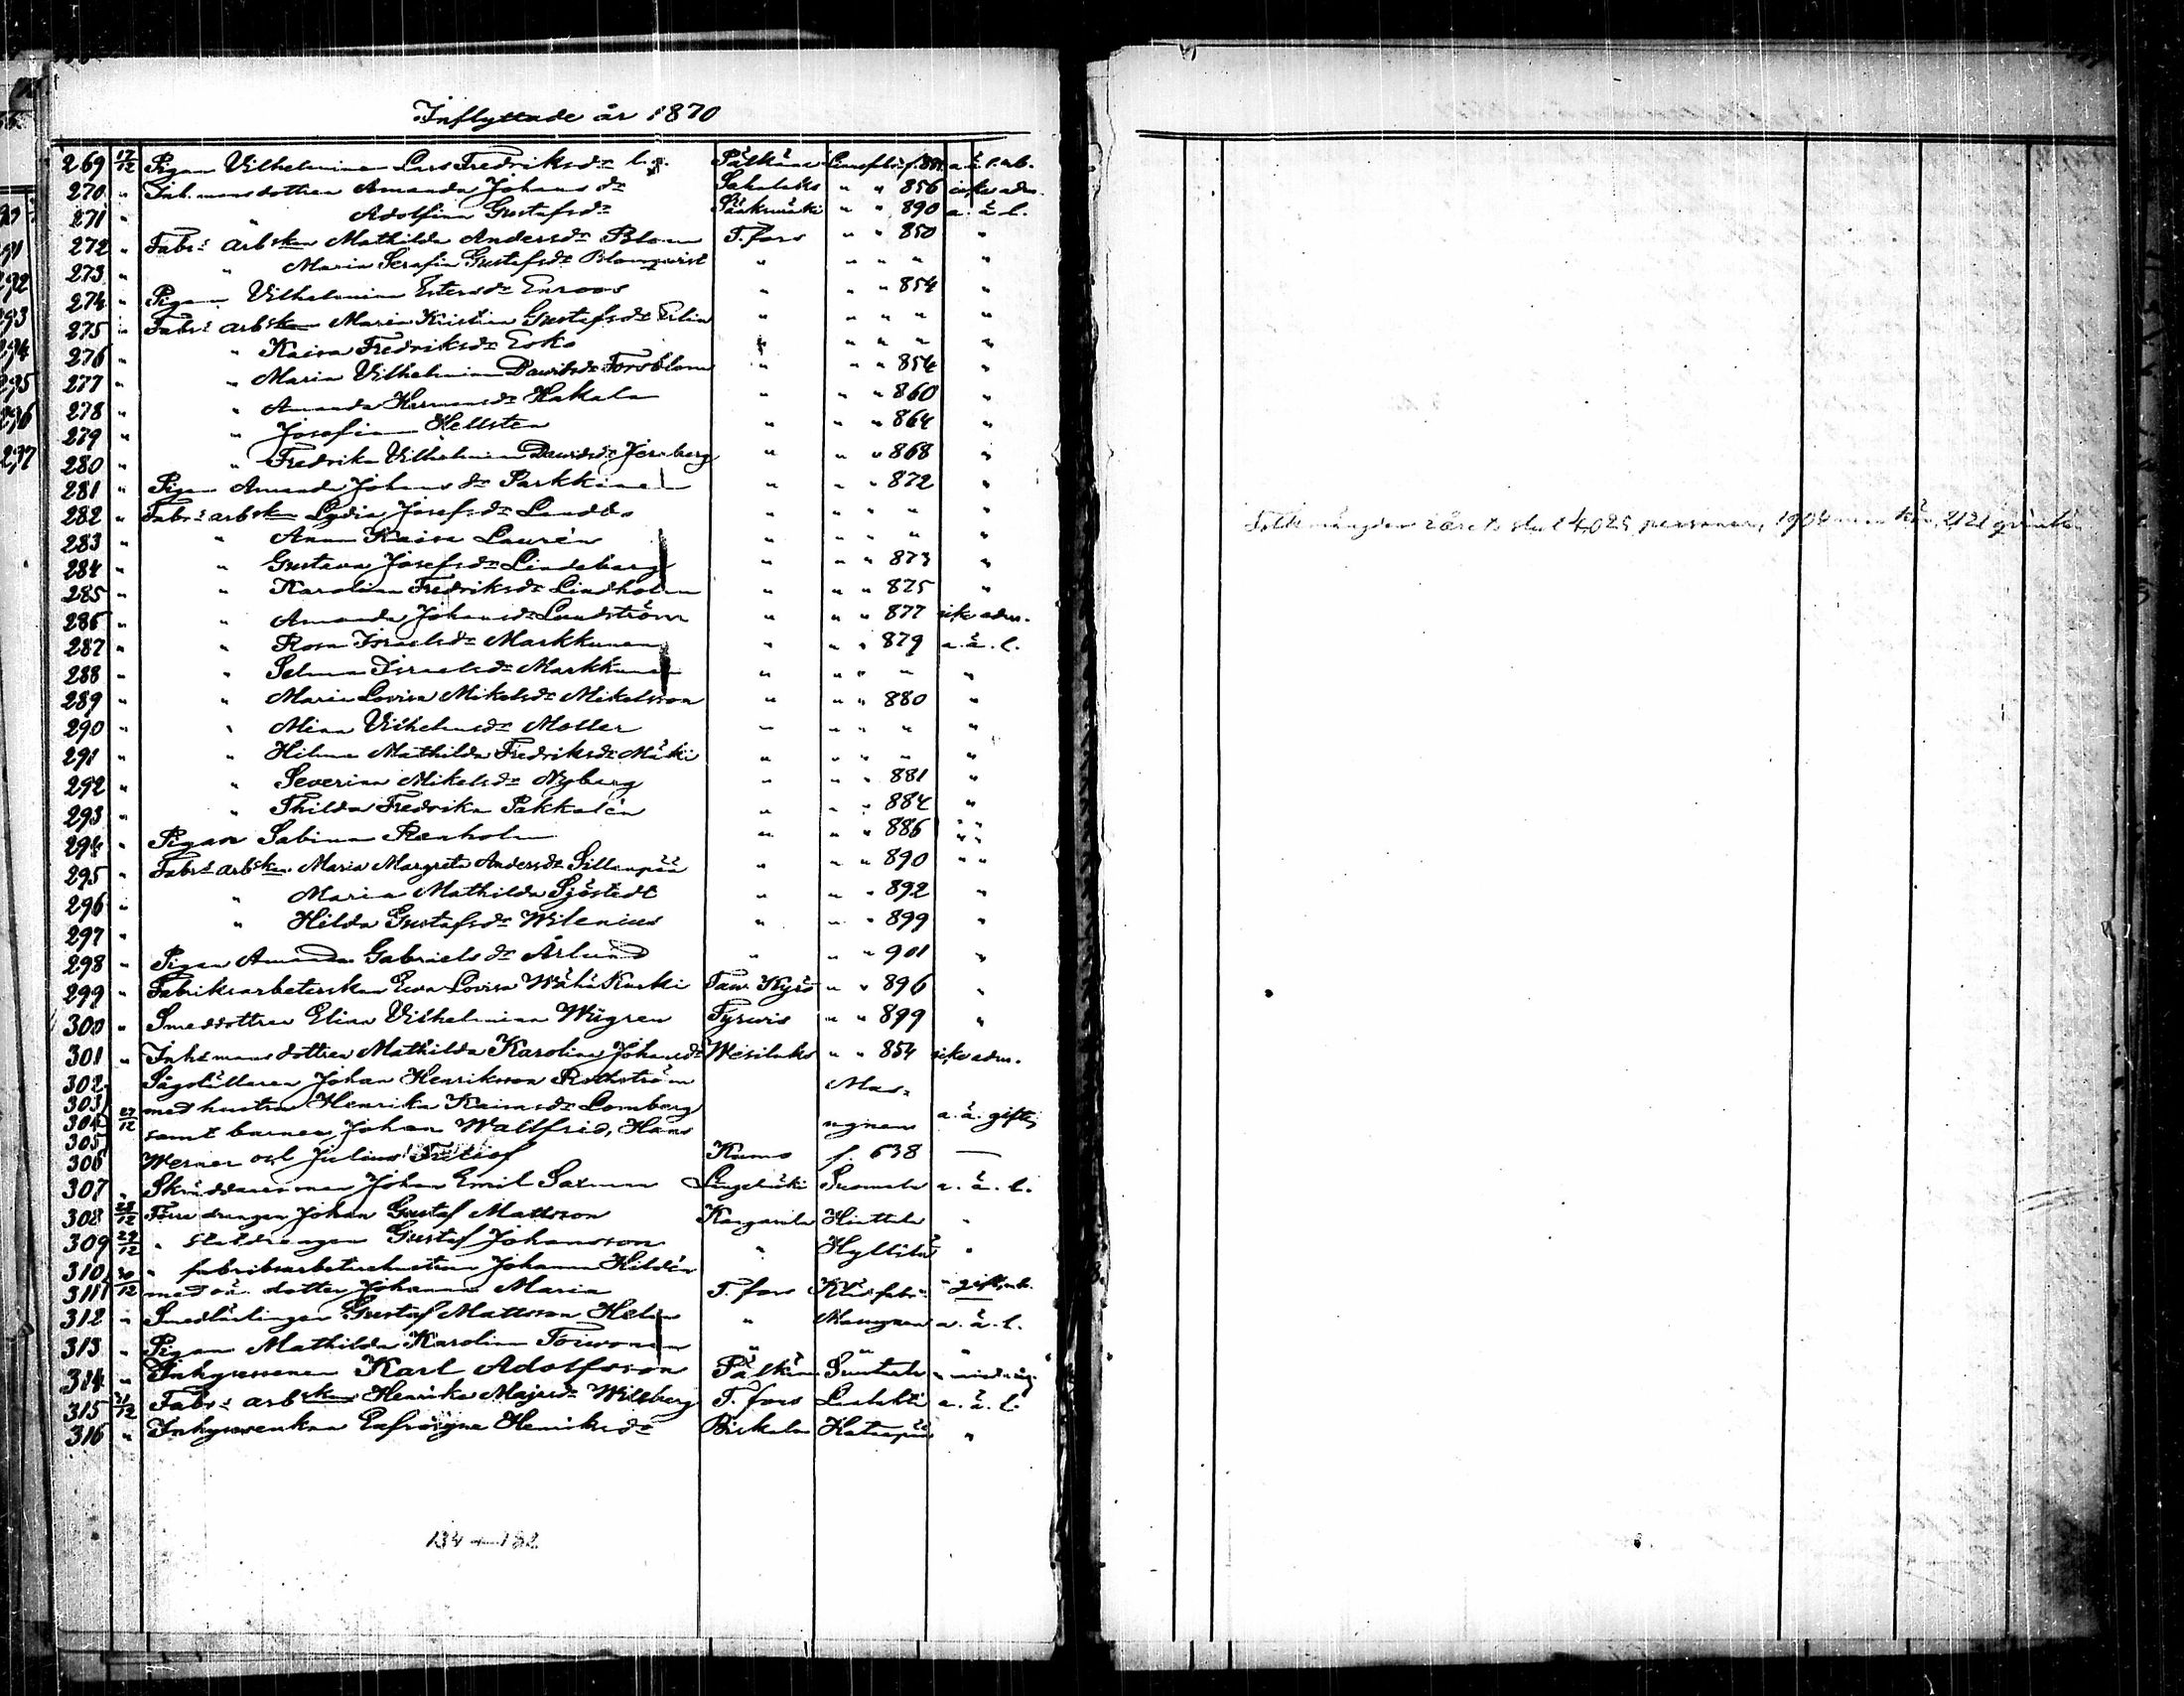 Inflyttade år 1870
269 17/12 Pigan Vilhelmina Lars Fredriksdr Pälkäne a. ä. l.
270 " Inh. mans dottren Amanda Johansdr Sahalaks " " 856 icke adm.
271 " " Adolfina Gustafsdr Sääksmäki " " 890 a. ä. l.
272 " Fabrs arbskan Mathilda Andersdr Blom T.fors " " 850 "
273 " " Maria Serafia Gustafsdr Blomqvist " " " " "
274 " Pigan Vilhelmina Estersdr Enroos " " " 854 "
275 " Fabrs arbskan Maria Kristina Gustafsdr " " " " "
276 " " Kaisa Fredriksdr Esko " " " " "
277 " " Maria Vilhelmina Davidsdr Forsblom " " " 854 "
278 " " Amanda Hermansdr Hakala " " " 860 "
279 " " Josefina Hellsten " " " 864 "
280 " " Fredrika Vilhelmina Davidsdr Jernberg " " " 868 "
281 " Pigan Amanda Johansdr Parkkinen " " " 872 "
282 " Fabrs arbskan Lydia Josefsdr " " " " "
283 " " Anna Kaisa Laurén " " " " "
284 " " Gustava Josefsdr Lindeberg " " " 873 "
285 " " Karolina Fredriksdr Lindholm " " " 875 "
286 " " Amanda Johansdr Lundström " " " 877 icke adm.
287 " " Rosa Israelsdr Markkunen " " " 879 a. ä. l.
288 " " Selma Israelsdr Markkunen " " " " "
289 " " Maria Lovisa Mikelsdr Mikelsson " " " 880 "
290 " " Mina Vilhelmsdr Moller " " " " "
291 " " Hilma Mathilda Fredriksdr Mäki " " " " "
292 " " Severina Mikelsdr Nyberg " " " 881 "
293 " " Thilda Fredrika Pakkalén " " " 884 "
294 " Pigan Sabina Renholm " " " 886 " "
295 " Fabrs arbskan Maria Margreta Andersdr Sillanpää " " " 890 " "
296 " " Maria Mathilda Sjöstedt " " " 892 "
297 " " Hilda Gustafsdr Wilenius " " " 899 "
298 " Pigan Amanda Gabrielsdr Ärlund " " " 901 "
299 " Fabriksarbeterskan Eva Lovisa Wähä Kuski Taw. Kyrö " " 896 "
300 " Smeddottren Elina Vilhelmina Wigren Tyrvis " " 899 "
301 " Inhs mans dottren Mathilda Karolina Johansdr Wesilaks " " 854 icke adm.
302 Sågställaren Johan Henriksson Rothström Mas-
303 med hustru Henrika Kaisasdr Lomberg
304 27/12 samt barnen Johan Waltfrid, Hans ugnen a. ä. gifte
305
306 Werner och Julius Kumo f. 638 —
307 " Skräddaren Johan Emil Saxman Lengelmäki Suomela a. ä. l.
308 28/12 Förre drengen Johan Gustaf Mattsson Kangasala Hiettala "
309 29/12 " staldrengen Gustaf Johansson " Hyllilä "
310 30/12 " fabriksarbetarehustrun Johanna Hildén
311 med oä. dotter Johanna Maria T.fors
312 " Smedlärlingen Gustaf Mattsson Helin " Masugnen a. ä. l.
313 " Pigan Mathilda Karolina Toivonen " " "
314 " Inhysesonen Karl Adolfsson Pälkäne "
315 31/12 Fabrs arbskan Henrika Majasdr Willberg T.fors a. ä. l.
316 " Inhyseenkan Eufrosyne Henriksdr Birkala Hatanpää "
134 + 182
Folkmängden i årets slut 4,025 personer, 1904 man kön, 2121 qvinkön